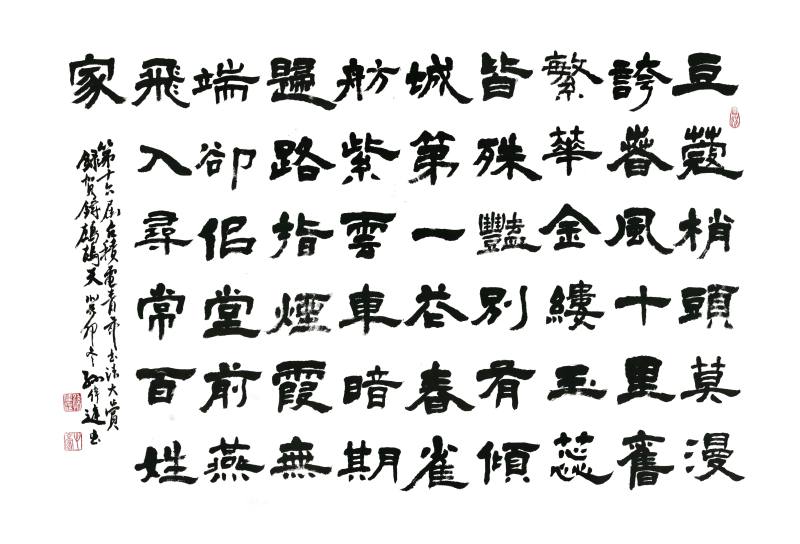 豆蔻梢頭莫漫
誇春風十里舊
繁華金縷玉蕊
皆殊豔別有傾
城第一花春雀
舫紫雲車暗期
歸路指煙霞無
端卻佀堂前燕
飛入尋常百姓
家
第十六屆台積電青年書法大賞
錄賀鑄鷓鴣天 癸卯冬 書